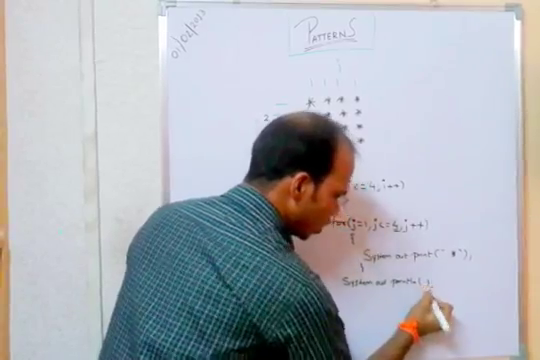 01/02/2023
PATTERNS
1 1 1 1
* * * *
2 * * * *
*
*
<=4, i++)
for(j=1, j<=4, j++)
{
System.out.print(" *");
}
System.out.println( );